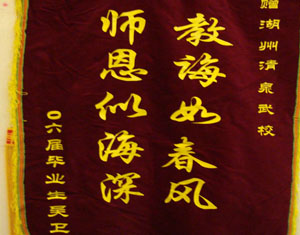 赠湖州清泉武校
教诲如春风
师恩似海深
〇六届毕业生吴卫